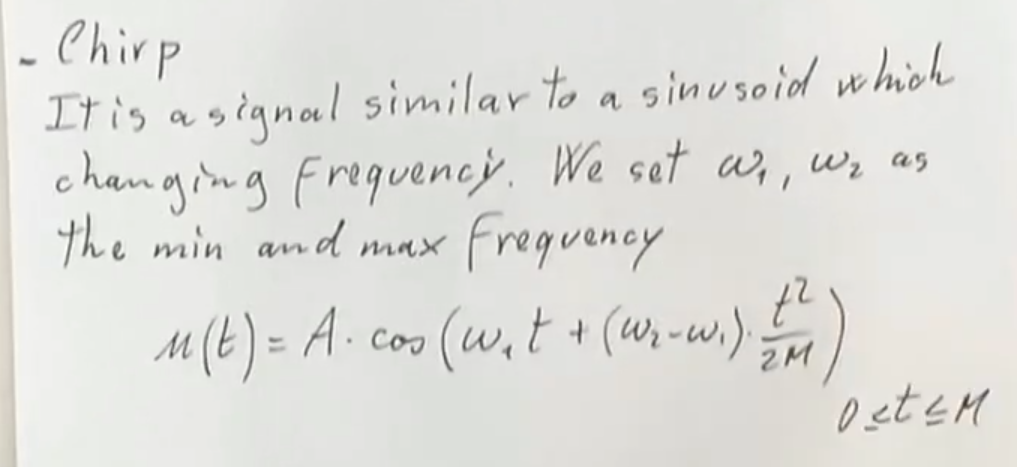 - Chirp
It is a signal similar to a sinusoid which
changing frequency. We set ω₁, ω₂ as
the min and max frequency
u(t) = A · cos(ω₁t + (ω₂-ω₁) · t²/2M)
0 ≤ t ≤ M